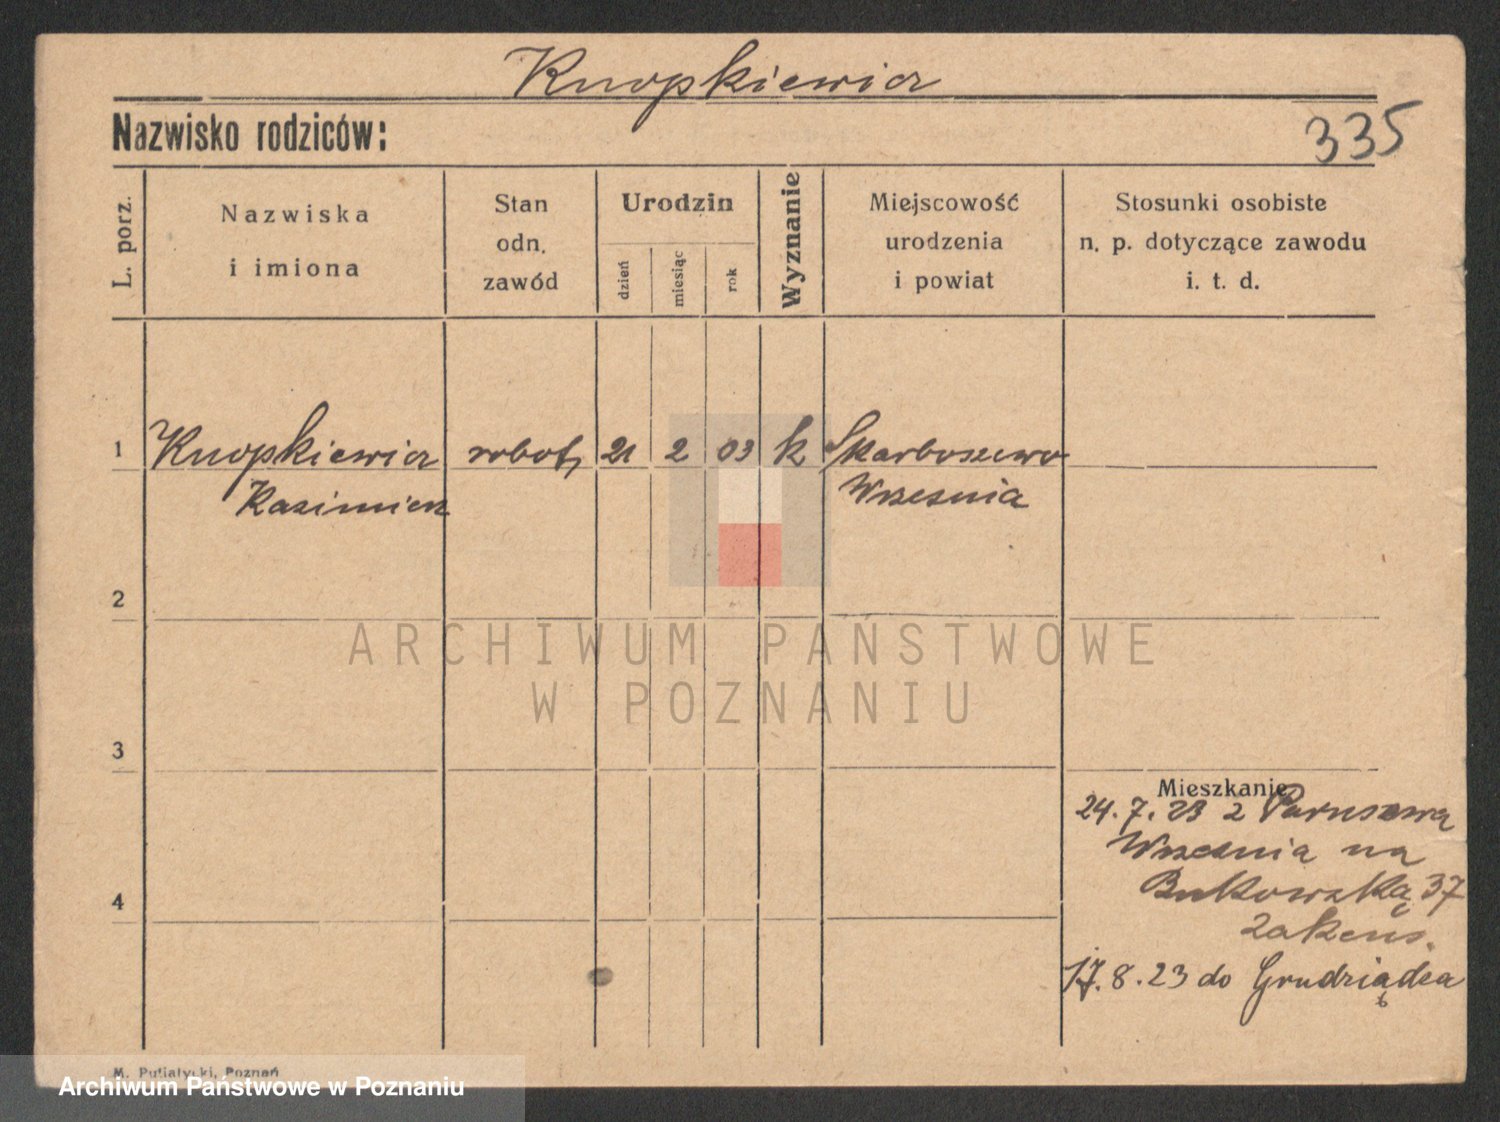 Knopkiewicz
Nazwisko rodziców:
335
L. porz.
Nazwiska
i imiona
Stan
odn.
zawód
Urodzin
dzień
miesiąc
rok
Wyznanie
Miejscowość
urodzenia
i powiat
Stosunki osobiste
n. p. dotyczące zawodu
i. t. d.
1 Knopkiewicz robotn 21 2 03 k Skarboszewo
Kazimierz Wrzesnia
2
ARCHIWUM PAŃSTWOWE
W POZNANIU
3
Mieszkanie
24. 7. 23 z
Wrzesnia na
4
Bukowską 37
17. 8. 23 do Grudziądza
M. Putiatycki, Poznań
Archiwum Państwowe w Poznaniu